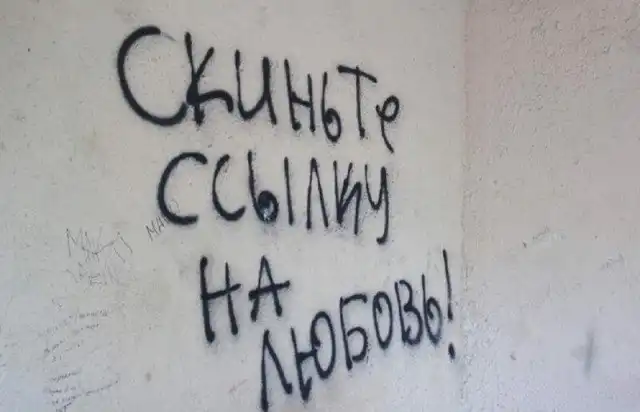 Скиньте
ссылку
на
любовь!